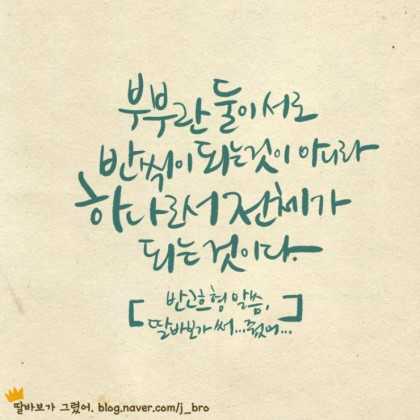 부부란 둘이 서로
반씩이 되는것이 아니라
하나로서 전체가
되는 것이다.
[반고흐형 말씀,
딸바보가 써...줬어...]
딸바보가 그렸어. blog.naver.com/j_bro